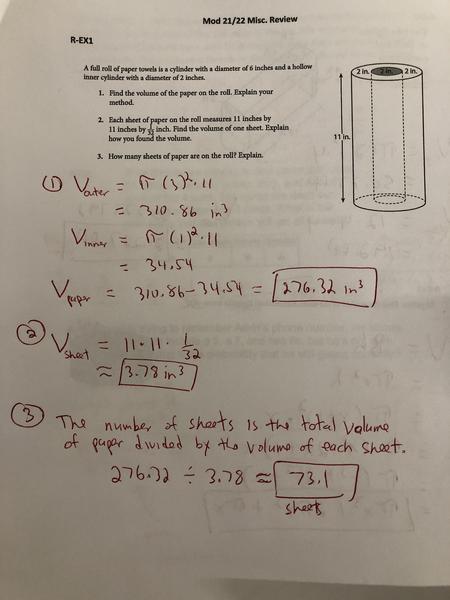 Mod 21/22 Misc. Review
R-EX1
A full roll of paper towels is a cylinder with a diameter of 6 inches and a hollow
inner cylinder with a diameter of 2 inches.
1. Find the volume of the paper on the roll. Explain your
method.
2. Each sheet of paper on the roll measures 11 inches by
11 inches by 1/32 inch. Find the volume of one sheet. Explain
how you found the volume.
3. How many sheets of paper are on the roll? Explain.
2 in. 2 in. 2 in.
11 in.
① Vouter = π(3)²·11
= 310.86 in³
Vinner = π(1)²·11
= 34.54
Vpaper = 310.86-34.54 = 276.32 in³
② Vsheet = 11·11·1/32
≈ 3.78 in³
③ The number of sheets is the total volume
of paper divided by the volume of each sheet.
276.32 ÷ 3.78 ≈ 73.1
sheets